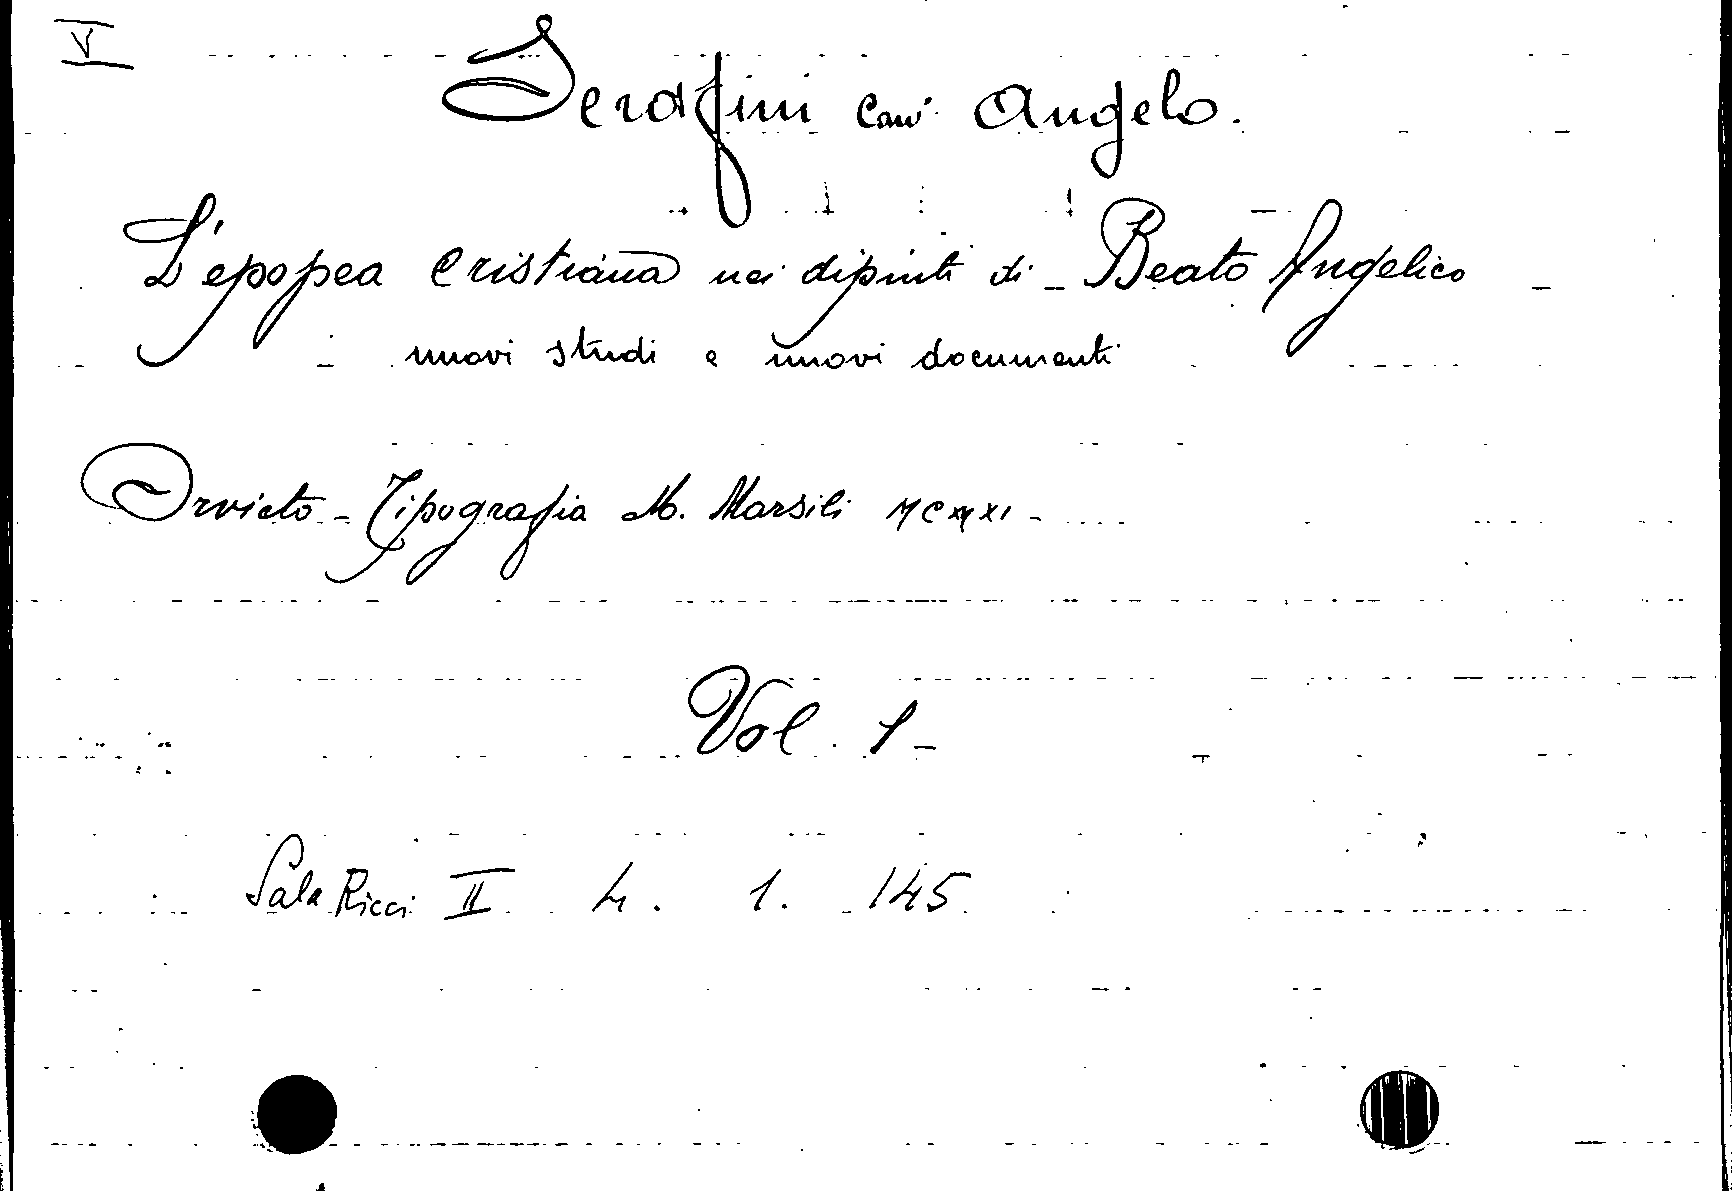 V
Serafini Cav. Angelo.
L'epopea cristiana nei dipinti di - Beato Angelico -
- nuovi studi e nuovi documenti
Orvieto - Tipografia M. Marsili -
Vol. 1 -
Sala Ricci II 4. 1. 145